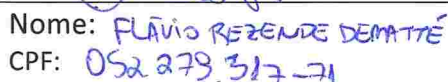 Nome: FLÁVIO REZENDE DEMATTÉ
CPF: 052 279.317-71